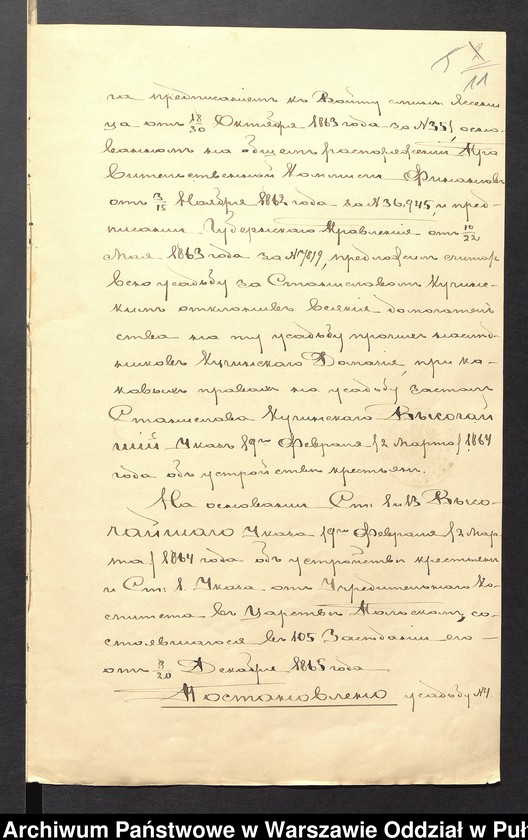 11
га предписаніемъ къ Войту гмины Ясени
ца отъ 18/30 Октября 1863 года за №351, осно
ваннымъ на общемъ распоряженіи Пра
вительственной Коммисіи Финансовъ
отъ 3/15 Ноября 1862 года за №36.945, и пред-
писаніи Губернскаго Правленія отъ 10/22
Мая 1863 года за №7819, предложилъ считать
всю усадьбу за Станиславомъ Кучинс-
кимъ отклонивъ всякіе домогатель
ства на ту усадьбу прочихъ наслѣд-
никовъ Кучинскаго Допаніе, при ка-
ковыхъ правахъ на усадьбу засталъ
Станислава Кучинскаго Высочай
шій Указъ 19го Февраля /2 Марта/ 1864
года объ устройствѣ крестьянъ.
На основаніи Ст: 1 и 13 Высо-
чайшаго Указа 19го Февраля /2 Мар
та/ 1864 года объ устройствѣ крестьянъ
и Ст: 1. Указа отъ Учредительнаго Ко-
митета въ Царствѣ Польскомъ, со-
стоявшагося въ 105 Засѣданіи его
отъ 8/20 Декабря 1865 года
Постановлено усадьбу №4.
Archiwum Państwowe w Warszawie Oddział w Puł